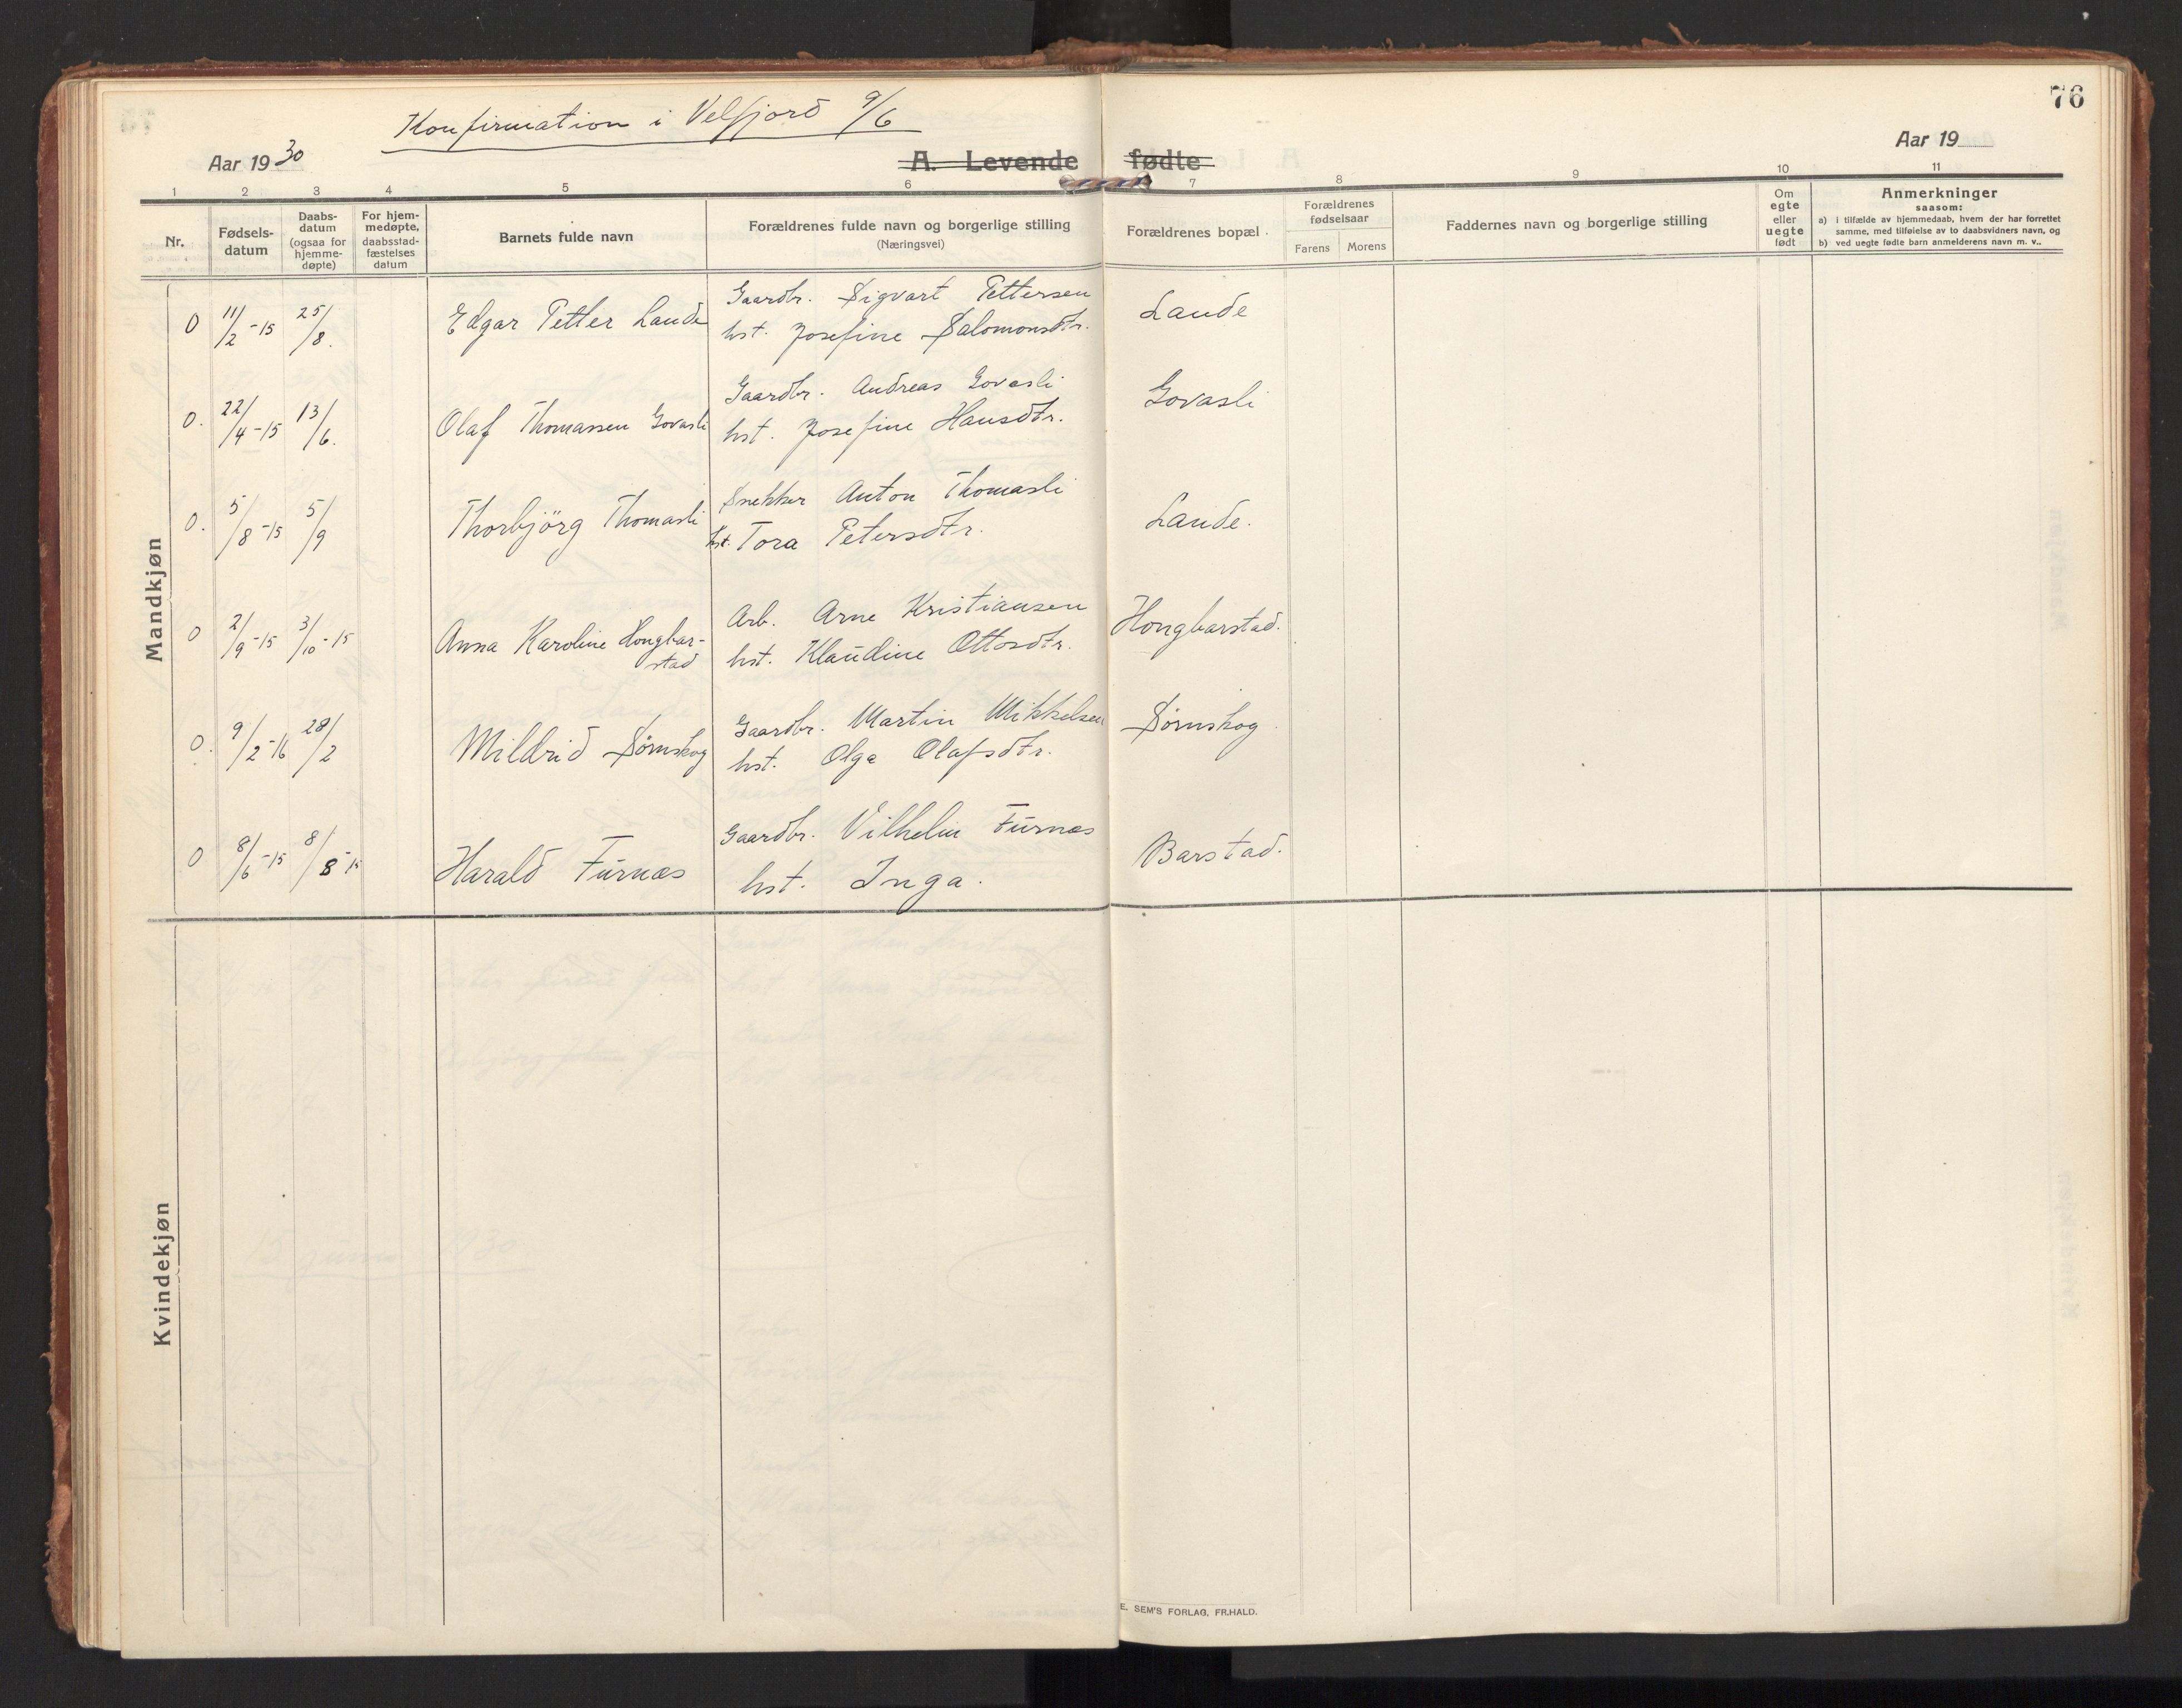 Konfirmation i Velfjord 9/6
76
Aar 1930
A. Levende fødte
Aar 19
1 2 3 4 5 6 7 8 9 10 11
Nr.
Fødsels-
datum
Daabs-
datum
(ogsaa for
hjemme-
døpte)
For hjem-
medøpte,
daabsstad-
fæstelses
datum
Barnets fulde navn
Forældrenes fulde navn og borgerlige stilling
(Næringsvei)
Forældrenes bopæl.
Forældrenes
fødselsaar
Farens Morens
Faddernes navn og borgerlige stilling
Om
egte
eller
uegte
født
Anmerkninger
saasom:
a) i tilfælde av hjemmedaab, hvem der har forrettet
samme, med tilføielse av to daabsvidners navn, og
b) ved uegte fødte barn anmelderens navn m. v..
Mandkjøn
0 11/2-15 25/8. Edgar Petter Lande Gaardbr. Sigvart Pettersen Lande
hst. Josefine Salomonsdtr.
0. 22/4-15 13/6. Olaf Thomassen Govasli Gaardbr. Andreas Govasli Govasli
hst. Josefine Hansdtr.
0. 5/8-15 5/9 Thorbjörg Thomasli Snekker Anton Thomasli Lande.
hst. Tora Petersdtr.
0 2/9-15 3/10-15 Anna Karoline Hongbar- Arb. Arne Kristiansen Hongbarstad.
stad hst. Klaudine Ottosdtr.
0. 9/2-16 28/2 Mildrid Sörnskog Gaardbr. Martin Mikkelsen Sörnskog
hst. Olga Olafsdtr.
0 8/6-15 8/8-15 Harald Furnes Gaardbr. Vilhelm Furnes Barstad.
hst. Inga.
Kvindekjøn
E. SEM'S FORLAG, FR.HALD.